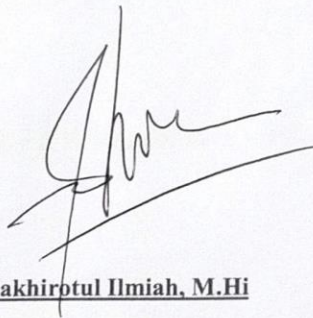 akhirotul Ilmiah, M.Hi